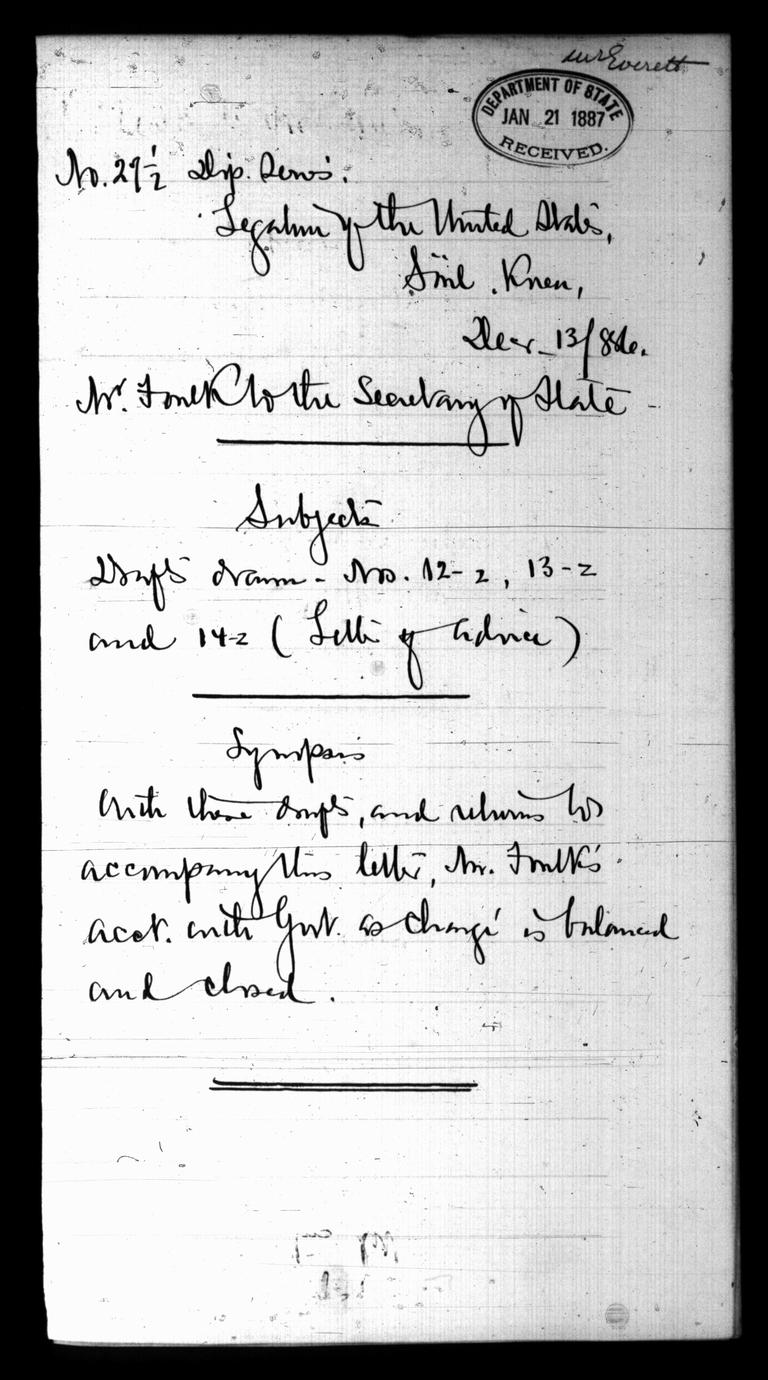 Mr Everett
DEPARTMENT OF STATE
JAN 21 1887
RECEIVED.
No. 29½ Dip. Series.
Legation of the United States,
Söul, Korea,
Dec. 13/86.
Mr. Foulk to the Secretary of State
Subject
Drafts drawn - Nos. 12-2, 13-2
and 14-2 (Letter of advice)
Synopsis
With these drafts, and returns to
accompany this letter, Mr. Foulk's
acct. with Govt. as chargé is balanced
and closed.